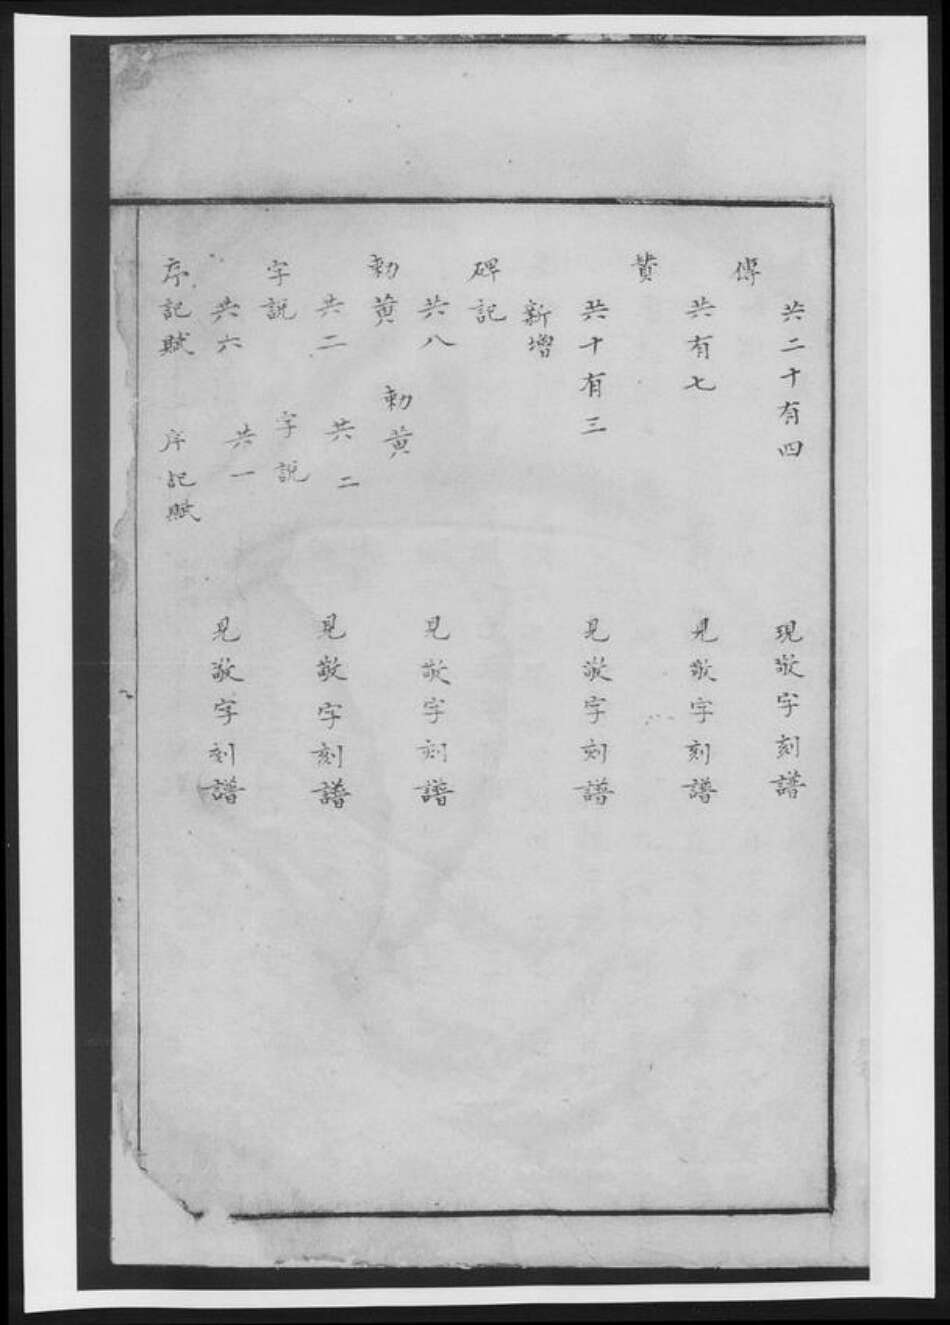 共二十有四 現敬字刻譜
傳
共有七 見敬字刻譜
贊
共十有三 見敬字刻譜
新增
碑記
共八 見敬字刻譜
勅黄 勅黄
共二 共二 見敬字刻譜
字説 字説
共六 共一 見敬字刻譜
序記賦 序記賦